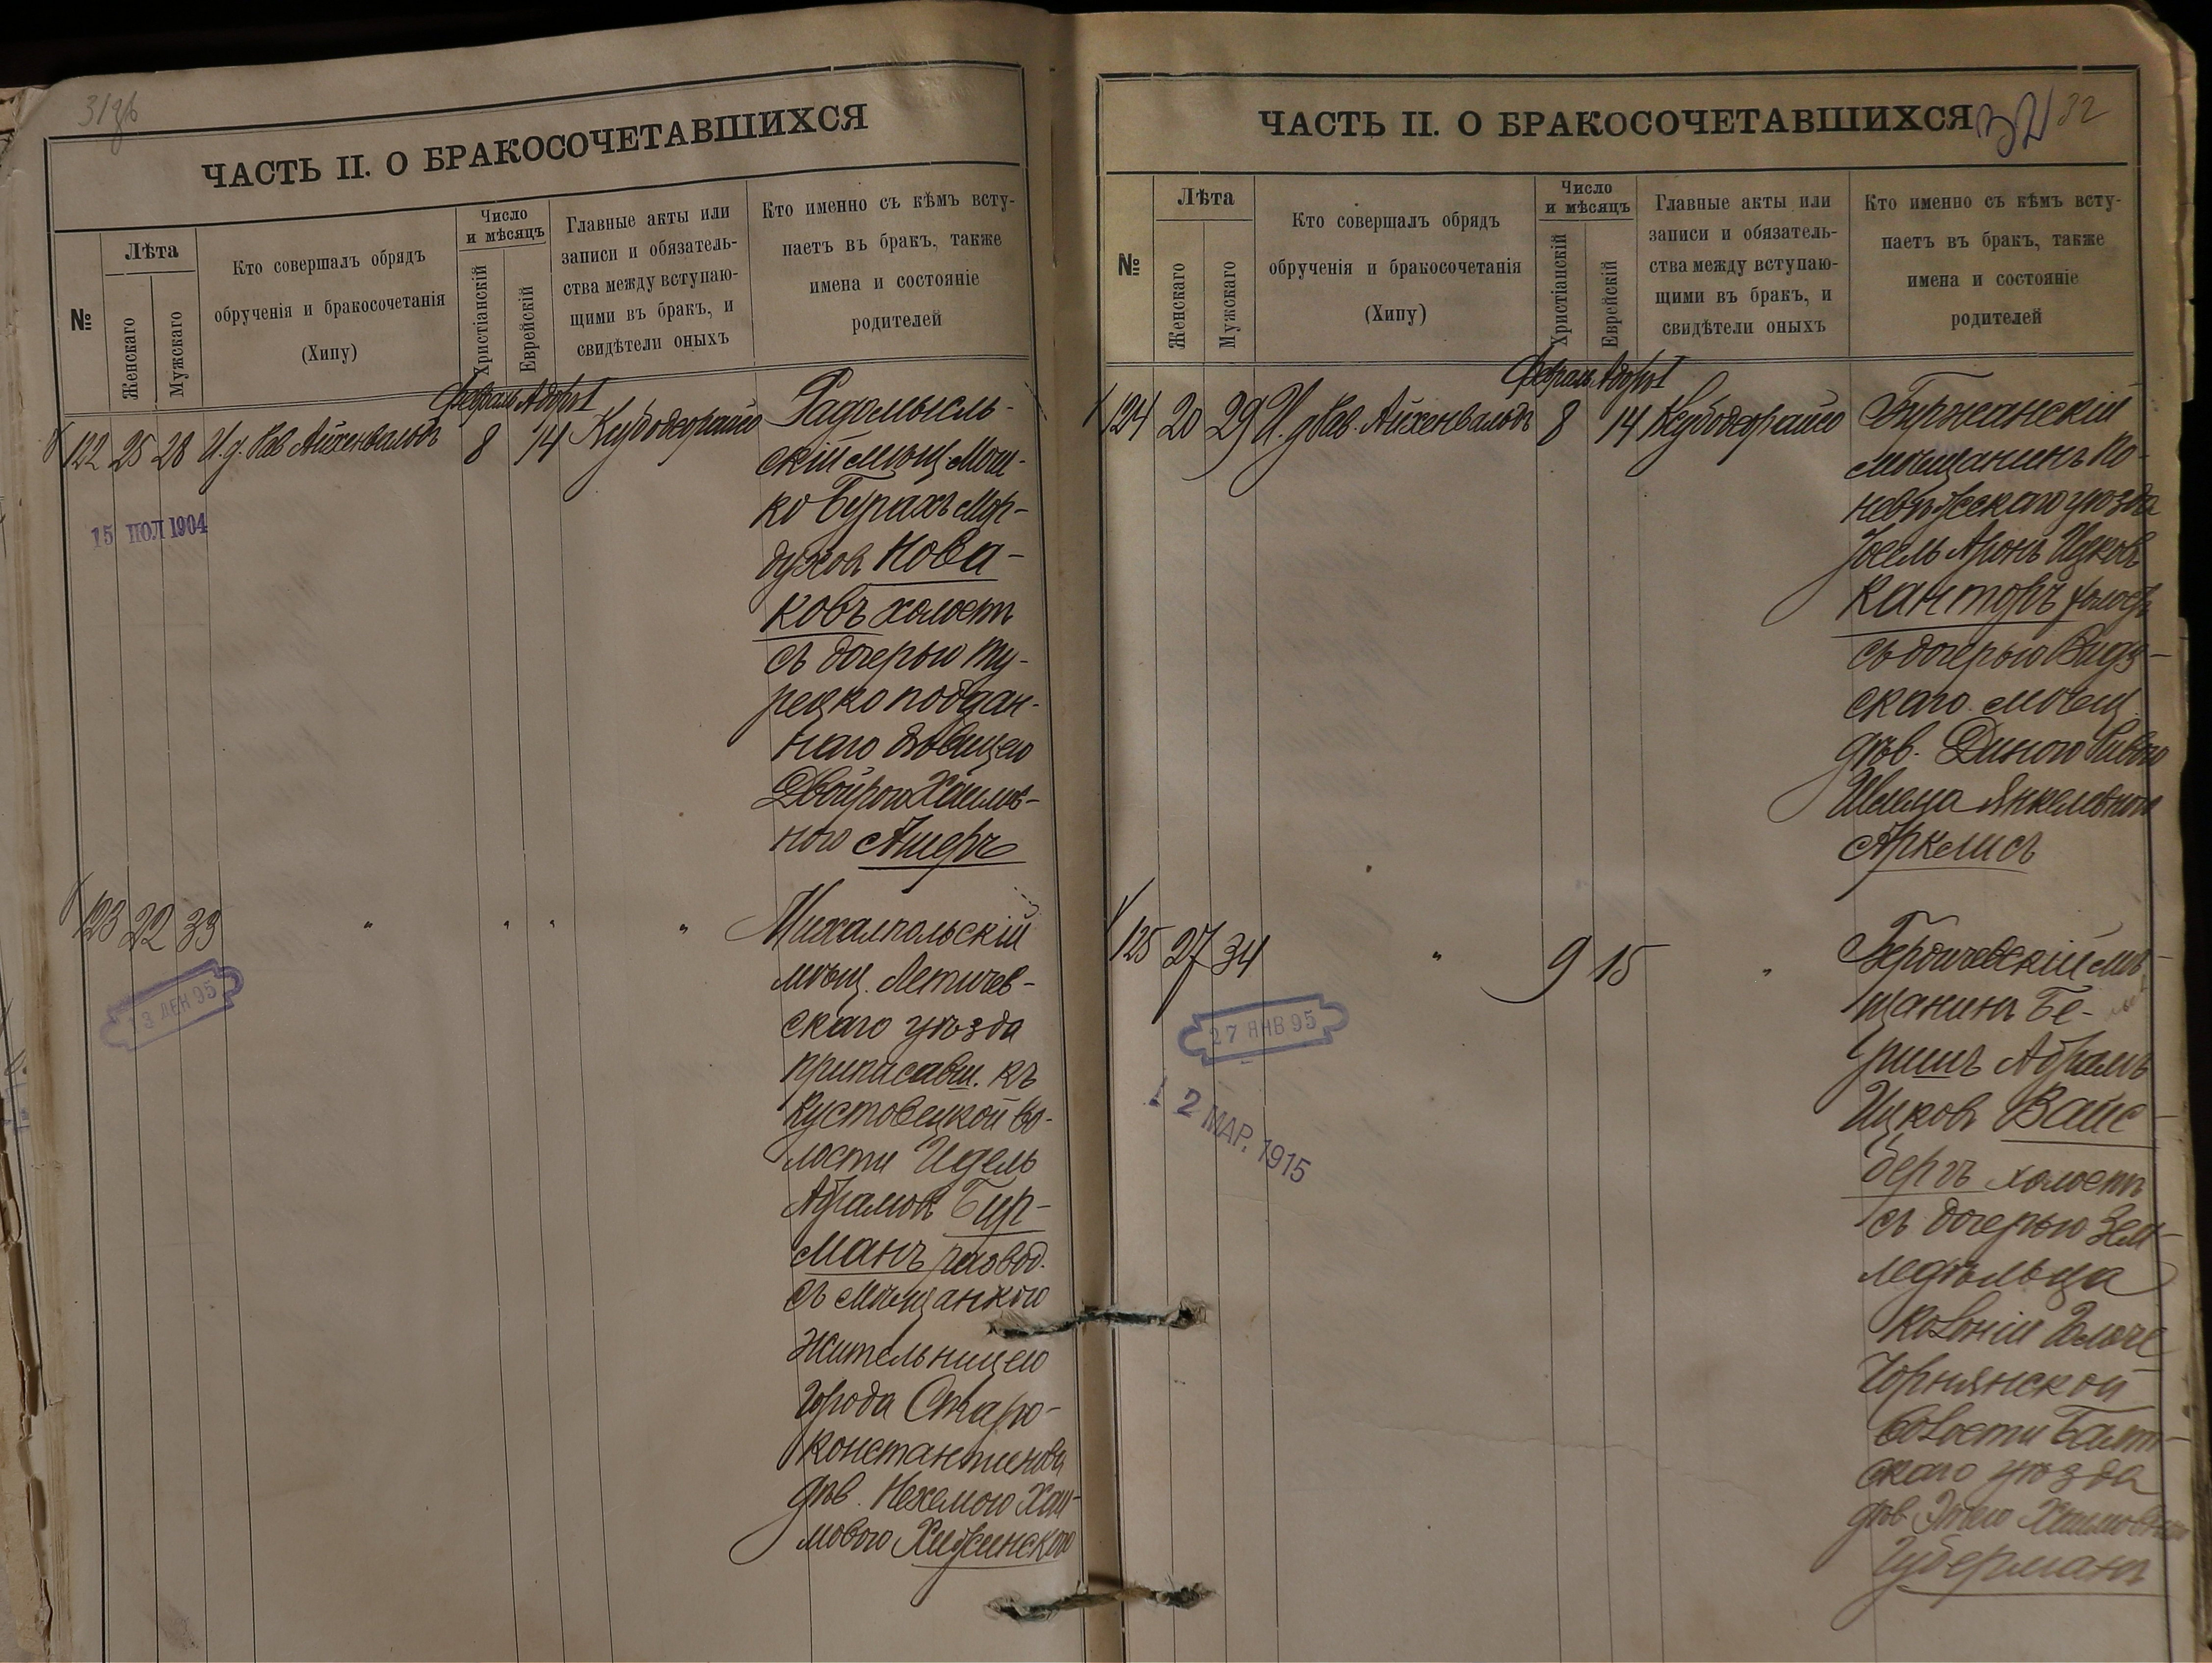 31об
ЧАСТЬ II. О БРАКОСОЧЕТАВШИХСЯ
№
Лѣта
Женскаго
Мужскаго
Кто совершалъ обрядъ
обрученія и бракосочетанія
(Хипу)
Число
и мѣсяцъ
Христіанскій
Еврейскій
Главные акты или
записи и обязатель-
ства между вступаю-
щими въ бракъ, и
свидѣтели оныхъ
Кто именно съ кѣмъ всту-
паетъ въ бракъ, также
имена и состояніе
родителей
Февраль Адоръ I
122 25 28 И. д. Рав Айхенвальдъ 8 14
Радомысль-
скій мѣщ. Мош-
ко Бурахъ Мор-
духов Нова-
ковъ холост
съ дочерью ту-
рецко поддан-
наго дѣвицею
Двойрою Хаимов-
ною Ашеръ
15 ІЮЛ 1904
123 22 33 " " " "
Михалпольскій
мѣщ. Летичев-
скаго уѣзда
приписавш. къ
Кустовецкой во-
лости Идель
Абрамов Бир-
манъ развод.
съ мѣщанкою
жительницею
города Старо-
константинова
дѣв. Нехамою Хаи-
мовою Хижинскою
13 ДЕН 95
ЧАСТЬ II. О БРАКОСОЧЕТАВШИХСЯ
32
32
№
Лѣта
Женскаго
Мужскаго
Кто совершалъ обрядъ
обрученія и бракосочетанія
(Хипу)
Число
и мѣсяцъ
Христіанскій
Еврейскій
Главные акты или
записи и обязатель-
ства между вступаю-
щими въ бракъ, и
свидѣтели оныхъ
Кто именно съ кѣмъ всту-
паетъ въ бракъ, также
имена и состояніе
родителей
Февраль Адоръ I
124 20 29 И. д. Рав. Айхенвальдъ 8 14
Биржанскій
мѣщанинъ По-
невѣжскаго уѣзда
Іосель Аронъ Ицков
Канторъ холост
съ дочерью Видз-
скаго мѣщ.
дѣв. Диною Ривою
Шлема Янкелевною
Аркелисъ
125 27 34 " 9 15 "
Бердичевскій мѣ-
щанинъ Бе-
ришъ Абрамъ
Ицков Вайс-
бергъ холост
съ дочерью Зем-
ледѣльца
Колоніи
волости Балт-
скаго уѣзда
дѣв. Хаимовною
Губерманъ
27 ЯНВ 95
12 МАР. 1915